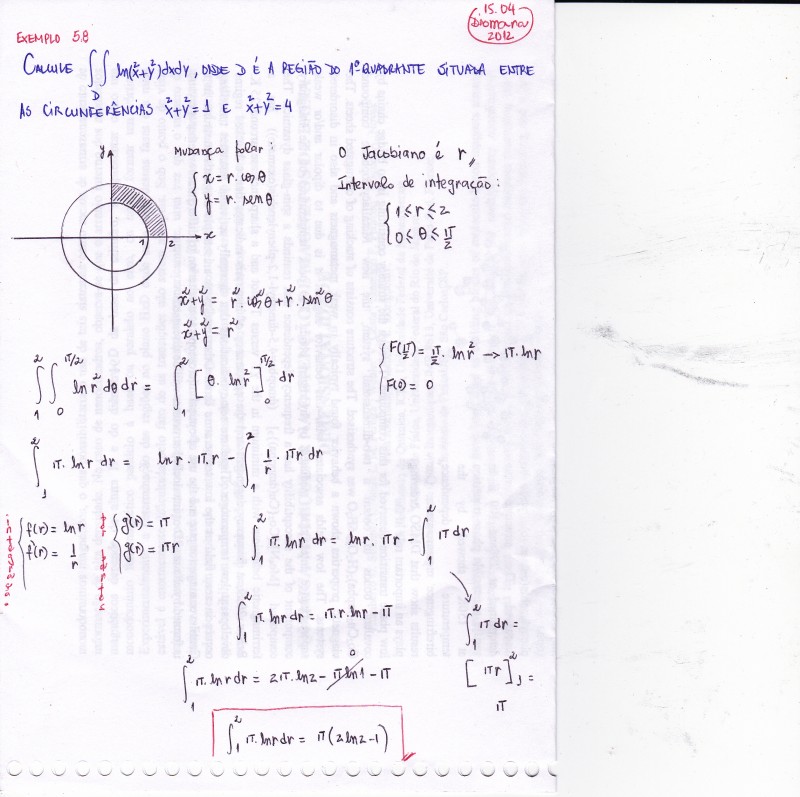 15.04
Diomara
2012
EXEMPLO 5.8
CALCULE ∬_D ln(x²+y²)dxdy, ONDE D É A REGIÃO DO 1º QUADRANTE SITUADA ENTRE
AS CIRCUNFERÊNCIAS x²+y²=1 E x²+y²=4
y
x
1 2
MUDANÇA polar:
{ x = r.cosθ
y = r.senθ
O Jacobiano é r,,
Intervalo de integração:
{ 1 ≤ r ≤ 2
0 ≤ θ ≤ π/2
x²+y² = r².cos²θ + r².sen²θ
x²+y² = r²
∫₁² ∫₀^(π/2) ln r² dθ dr = ∫₁² [θ. ln r²]₀^(π/2) dr
{ F(π/2) = π/2 . ln r² → π. ln r
F(0) = 0
∫₁² π. ln r dr = ln r. π.r − ∫₁² 1/r . πr dr
{ f(r) = ln r
f'(r) = 1/r
{ g'(r) = π
g(r) = πr
∫₁² π. ln r dr = ln r. πr − ∫₁² π dr
∫₁² π. ln r dr = π.r. ln r − π
∫₁² π dr =
[πr]₁² =
π
∫₁² π. ln r dr = 2π. ln 2 − π ln 1 − π
0
∫₁² π. ln r dr = π(2 ln 2 − 1)